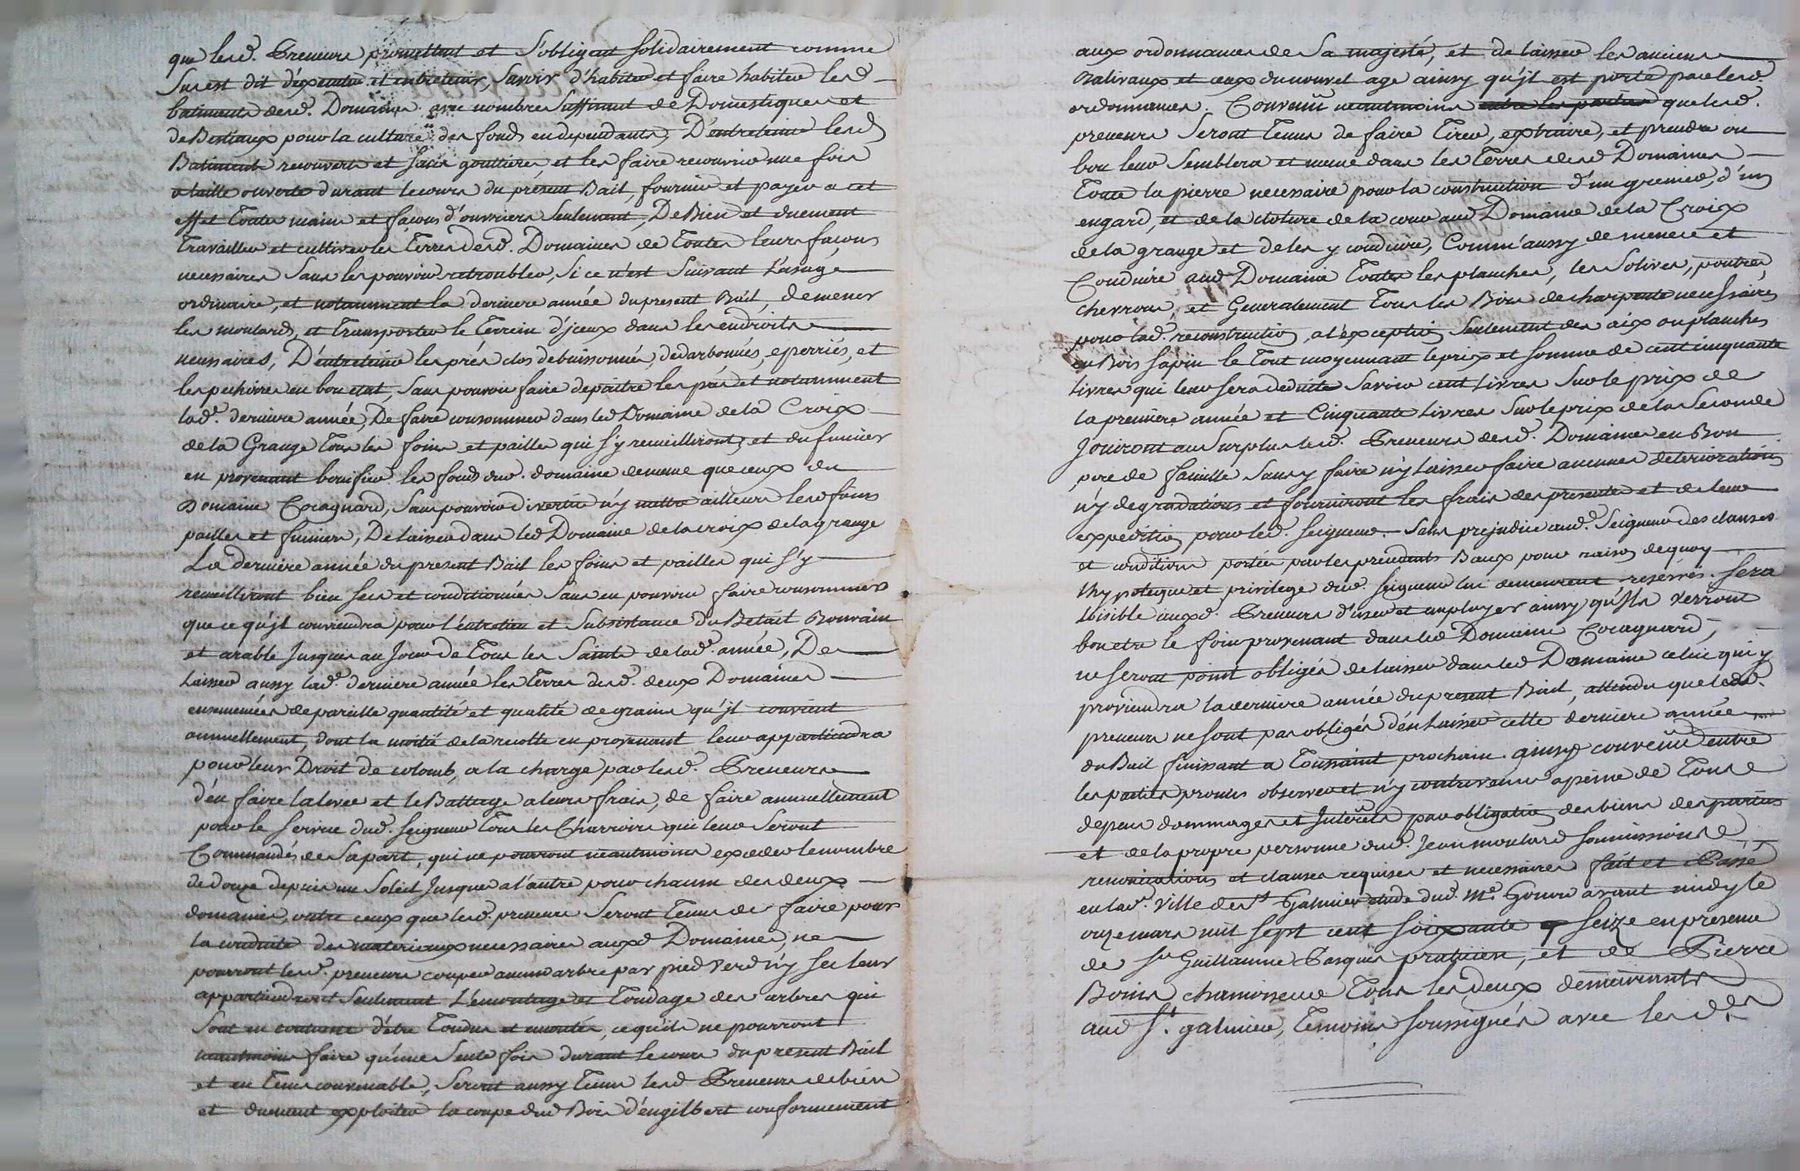 que lesd. Preneurs promettent et s'obligent solidairement comme
sus est dit d'exécuter et entretenir, savoir d'habiter et faire habiter lesd
batiments desd. Domaines avec nombre suffisant de Domestiques et
de Bestiaux pour la culture des fonds en dependants, D'entretenir lesd
Batiments recouverts et sans gouttieres, et les faire recouvrir une fois
a taille ouverte durant le cours du présent Bail, fournir et payer a cet
effet toutte main et façons d'ouvriers seulement, De Bien et duement
Travailler et cultiver les Terres desd. Domaines de toutes leurs façons
necessaires sans les pouvoir retroubler, si ce n'est suivant l'usage
ordinaire, et notamment la derniere année du present Bail, de mener
les moulards, et transporter le terrein d'jceux dans les endroits
necessaires, D'entretenir les prés clos debuissonnés, dedarbonnés, eperriés, et
les pechoires en bon etat, sans pouvoir faire depaitre les prés et notamment
lad.e derniere année, De faire consommer dans led Domaine de la Croix
de la Grange tous les foins et pailles qui s'y recueilliront, et du fumier
en provenant bonifier les fonds dud. domaine de meme que ceux du
Domaine Cocagnard, sans pouvoir divertir n'y mettre ailleurs lesd foins
pailles et fumiers, De laisser dans led Domaine de la croix de la grange
La derniere année du present Bail les foins et pailles qui s'y
recueilliront bien secs et conditionnés sans en pouvoir faire consommer
que ce qu'jl conviendra pour l'entretien et subsistance du Betail Bouvain
et arable jusques au jour de tous les Saints de lad.e année, De
laisser aussy lad.e derniere année les terres desd. deux Domaines
ensemencées de pareille quantité et qualité de grains qu'jl convient
annuellement, dont la moitié de la recolte en provenant leur appartiendra
pour leur Droit de colomb, a la charge par lesd. Preneurs
d'en faire la levée et le Battage a leurs frais, de faire annuellement
pour le service dud. seigneur tous les Charrois qui leur seront
Commandés de sa part, qui ne pourront neantmoins exceder le nombre
de douze depuis un soleil jusque a l'autre pour chacun des deux
domaines, outre ceux que lesd. preneurs seront tenus de faire pour
la conduite des materiaux necessaires auxd Domaines, ne
pourront lesd. preneurs couper aucun arbre par pied verd n'y sec leur
appartiendront seulement l'emontage et tondage des arbres qui
sont en coutume d'etre tondus et emontés, ce qu'ils ne pourront
neantmoins faire qu'une seule fois durant le cours du present Bail
et en tems convenable, seront aussy tenus lesd Preneurs de bien
et duement exploiter la coupe dud Bois d'engilbert conformement
aux ordonnances de sa majesté, et de laisser les anciens
Balivaux et ceux du nouvel age ainsy qu'jl est porté par lesd
ordonnances. Convenu neantmoins entre les parties que lesd.
preneurs seront tenus de faire tirer, extraire, et prendre ou
bon leur semblera et meme dans les terres desd Domaines
Toute la pierre necessaire pour la construction d'un grenier, d'un
engard, et de la cloture de la cour aud Domaine de la Croix
de la grange et de les y conduire, Comm'aussy de mener et
Conduire aud Domaine Toutes les planches, les solives, poutres
chevrons, et Generalement tous les Bois de charpente necessaires
pour lad.e reconstruction, a l'exception seulement des aix ou planches
en Bois sapin le tout moyennant le prix et somme de cent cinquante
livres qui leur sera deduite savoir cent livres sur le prix de
la premiere année et Cinquante livres sur le prix de la seconde
Jouiront au surplus lesd. Preneurs desd. Domaines en Bon
pere de famille sans y faire n'y laisser faire aucunes deteriorations
n'y degradations et fourniront les frais des presentes et de leur
expedition pour led. seigneur. sans prejudice aud. Seigneur des clauses
et conditions portées par les precedents Baux pour raison de quoy
l'hypoteque et privilege dud. seigneur lui demeurent reservés. sera
loisible auxd. Preneurs d'user et employer ainsy qu'ils verront
bon etre le foin provenant dans led Domaine Cocagnard,
ne seront point obligés de laisser dans led Domaine celui qui y
proviendra la derniere année du present Bail, attendu que lesd.
preneurs ne sont pas obligés d'en laisser cette derniere année
du Bail finissant a Toussaint prochain. ainsy convenu entre
les parties promis observer et n'y contrevenir a peine de tous
depens dommages et Interets par obligation des biens des parties
et de la propre personne dud. Jean moulard soumissions
renonciations et clauses requises et necessaires fait et Passé
en lad.e ville de st Galmier etude dud. Me Gonin avant midy le
onze mars mil sept cent soixante seize en presence
de sr Guillaume Pasquis praticien, et de Pierre
Bonis chamoiseur tous les deux demeurants
aud st. galmier, temoins soussignés avec lesd.